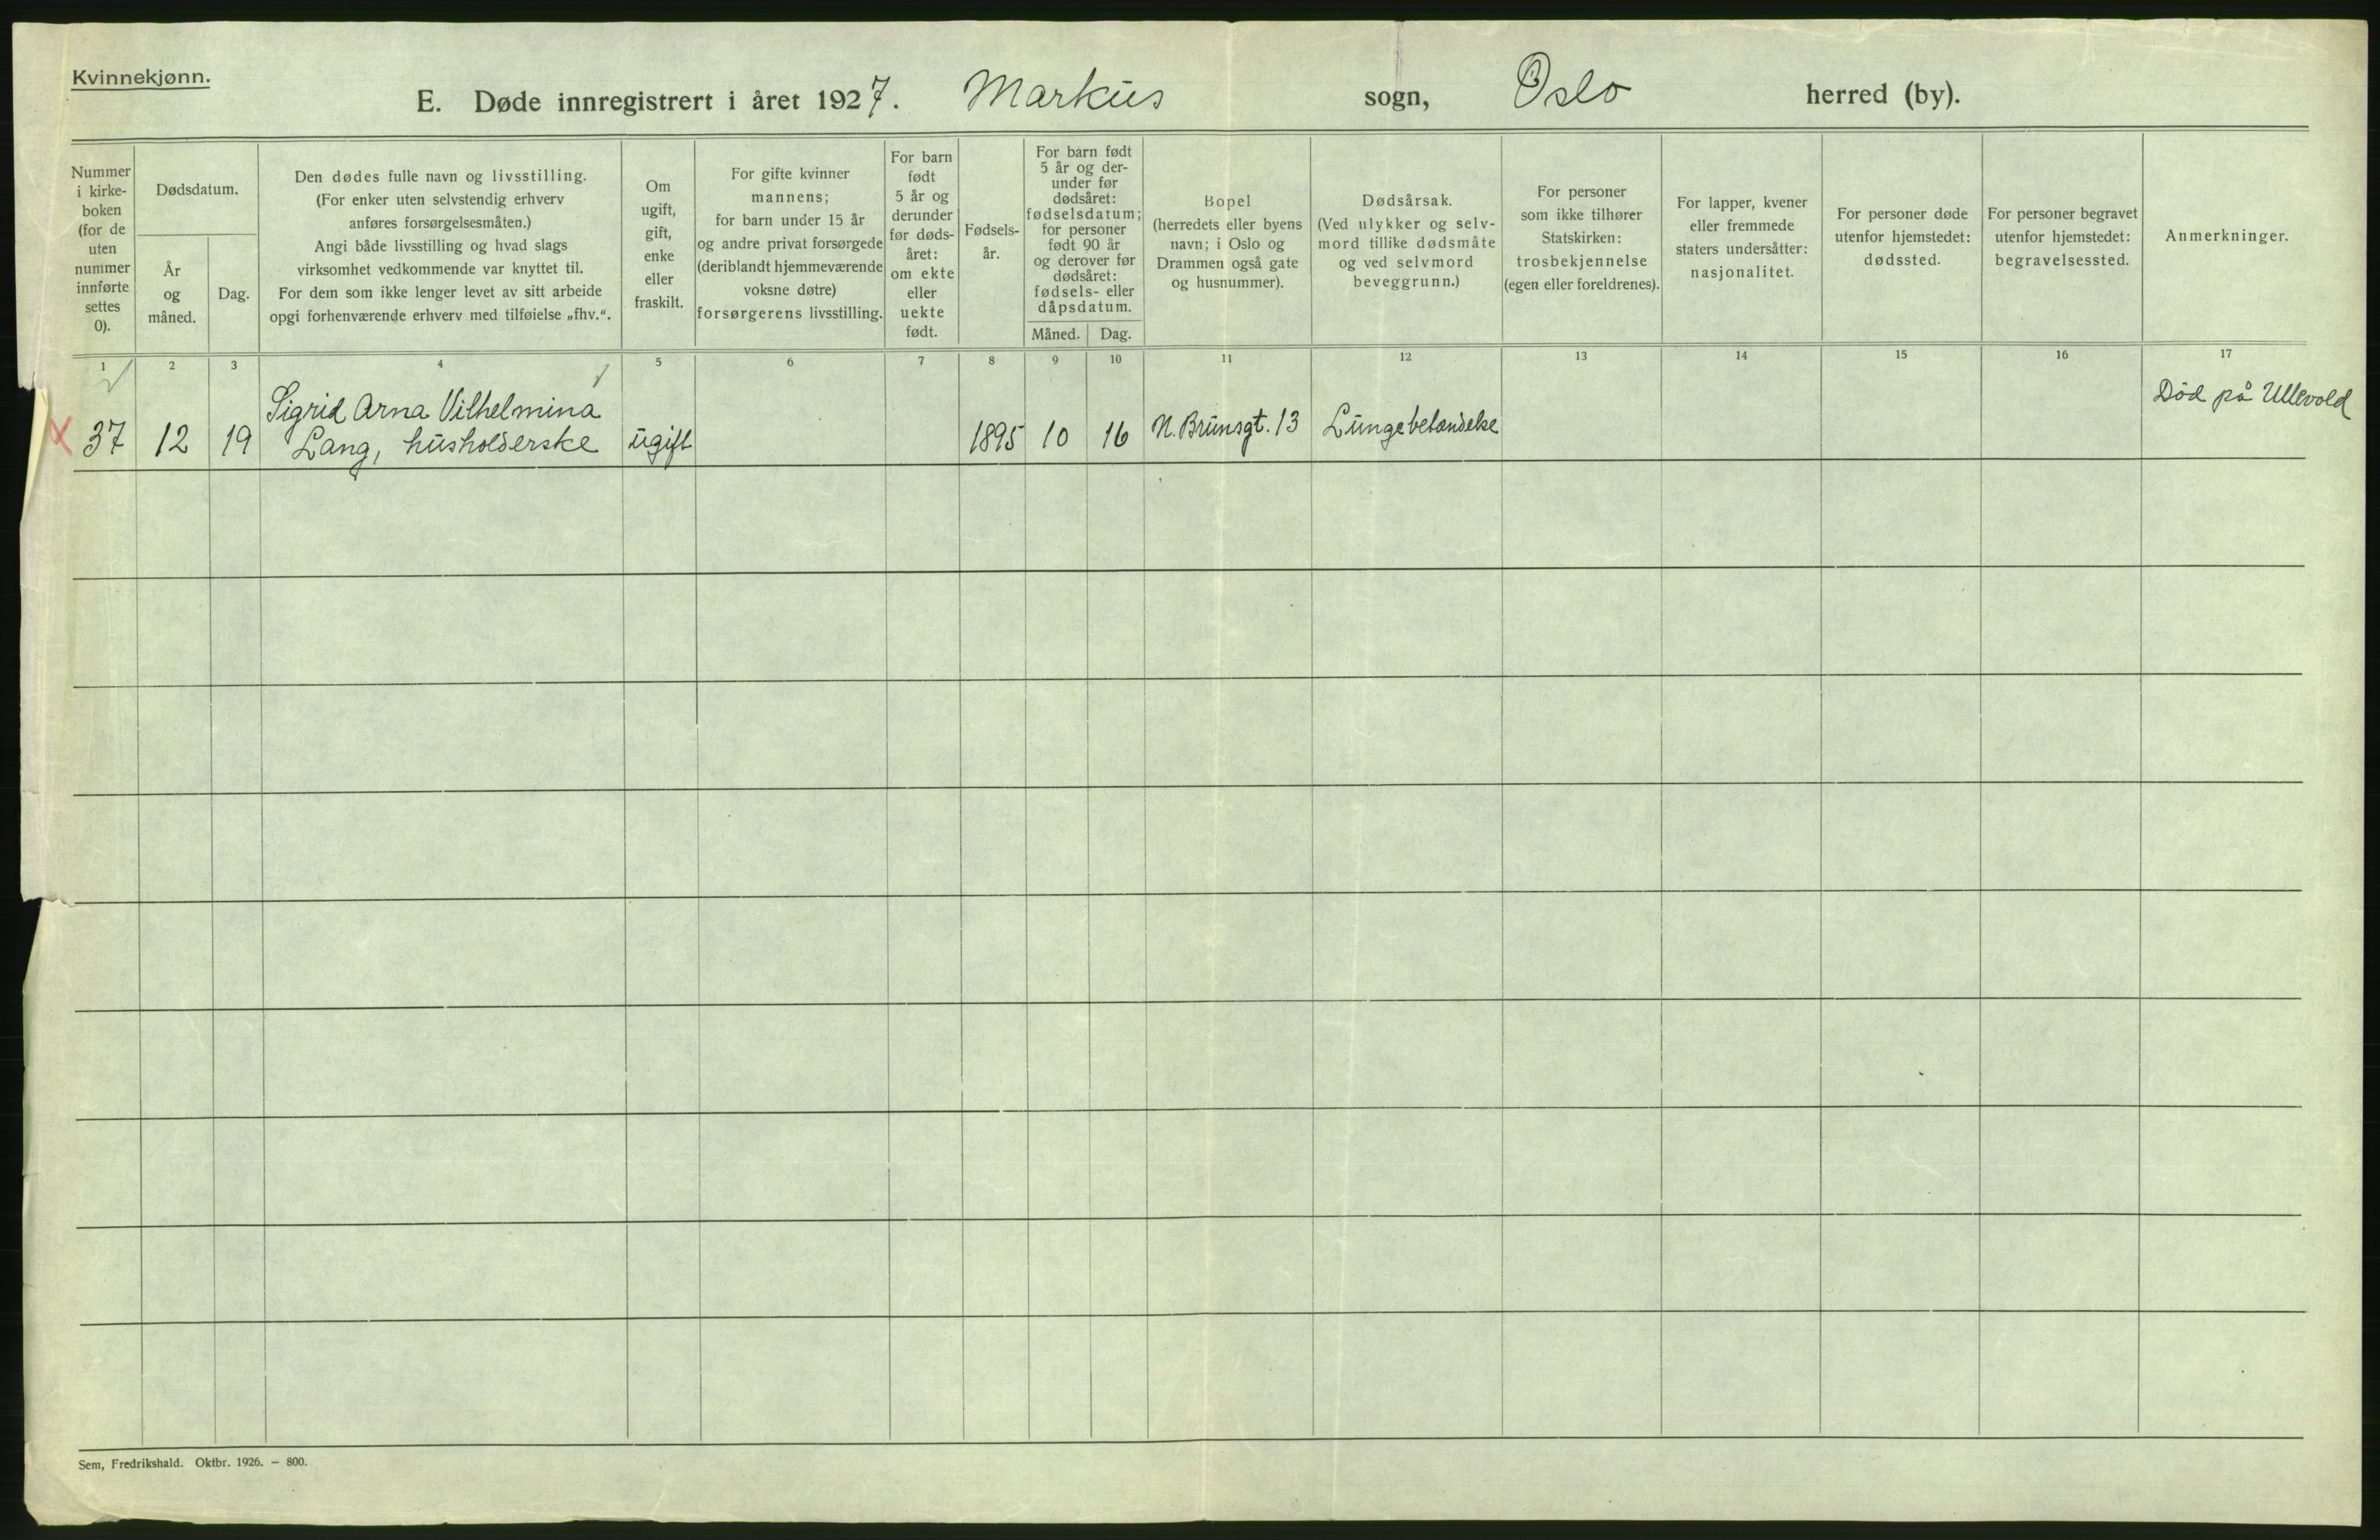 Kvinnekjønn.
E. Døde innregistrert i året 1927. Markus sogn, Oslo herred (by).
Nummer
i kirke-
boken
(for de
uten
nummer
innførte
settes
0).
Dødsdatum.
År
og
måned.
Dag.
Den dødes fulle navn og livsstilling.
(For enker uten selvstendig erhverv
anføres forsørgelsesmåten.)
Angi både livsstilling og hvad slags
virksomhet vedkommende var knyttet til.
For dem som ikke lenger levet av sitt arbeide
opgi forhenværende erhverv med tilføielse „fhv.“.
Om
ugift,
gift,
enke
eller
fraskilt.
For gifte kvinner
mannens;
for barn under 15 år
og andre privat forsørgede
(deriblandt hjemmeværende
voksne døtre)
forsørgerens livsstilling.
For barn
født
5 år og
derunder
før døds-
året:
om ekte
eller
uekte
født.
Fødsels-
år.
For barn født
5 år og der-
under før
dødsåret:
fødselsdatum;
for personer
født 90 år
og derover før
dødsåret:
fødsels- eller
dåpsdatum.
Måned. Dag.
Bopel
(herredets eller byens
navn; i Oslo og
Drammen også gate
og husnummer).
Dødsårsak.
(Ved ulykker og selv-
mord tillike dødsmåte
og ved selvmord
beveggrunn.)
For personer
som ikke tilhører
Statskirken:
trosbekjennelse
(egen eller foreldrenes).
For lapper, kvener
eller fremmede
staters undersåtter:
nasjonalitet.
For personer døde
utenfor hjemstedet:
dødssted.
For personer begravet
utenfor hjemstedet:
begravelsessted.
Anmerkninger.
1 2 3 4 5 6 7 8 9 10 11 12 13 14 15 16 17
Sigrid Arna Vilhelmina Død på Ullevold
37 12 19 Lang, husholderske ugift 1895 10 16 N. Brunsgt. 13 Lungebetændelse
Sem, Fredrikshald. Oktbr. 1926. — 800.